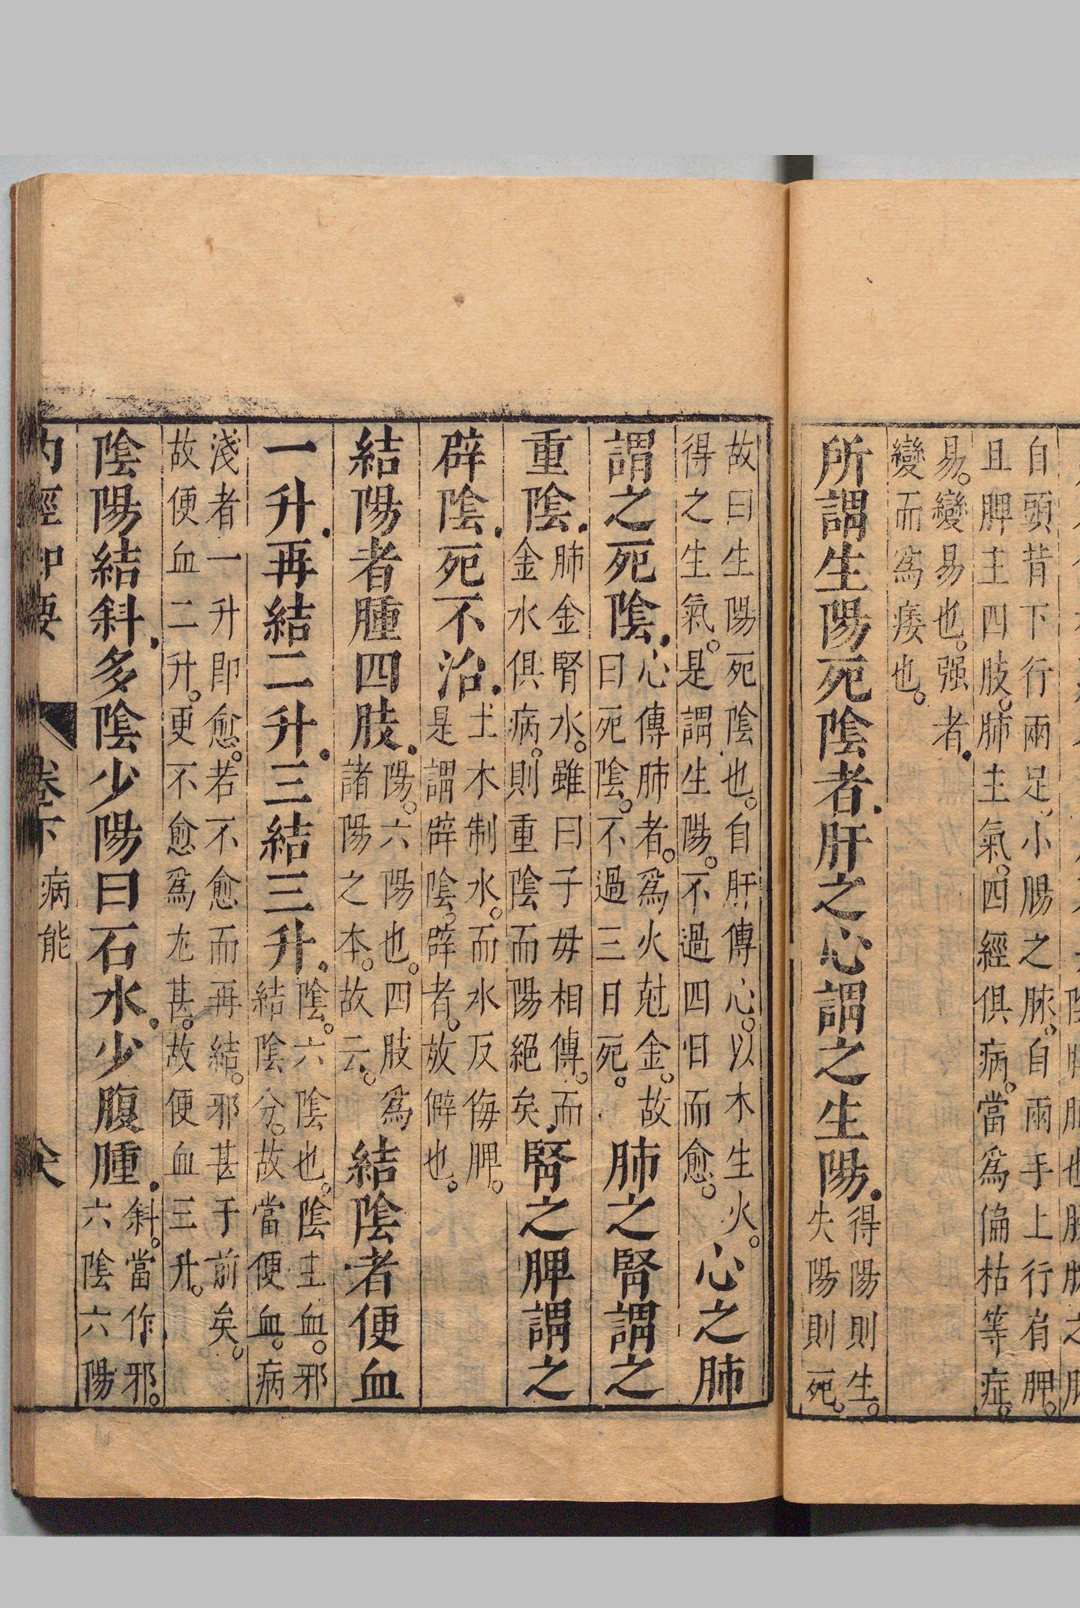 自頭背下行兩足。小腸之脉。自兩手上行有脾。
且脾主四肢。肺主氣。四經俱病。當爲偏枯等症。
易。變易也。强者.
變而爲痿也。
所謂生陽死陰者.肝之心謂之生陽.
得陽則生。
失陽則死。
故曰生陽死陰也。自肝傳心。以木生火。
得之生氣。是謂生陽。不過四日而愈。
心之肺
謂之死陰.
心傳肺者。爲火尅金。故
曰死陰。不過三日死。
肺之腎謂之
重陰.
肺金腎水。雖曰子母相傳。而
金水俱病。則重陰而陽絕矣.
腎之脾謂之
辟陰.死不治.
土木制水。而水反侮脾。
是謂辟陰。辟者。放僻也。
結陽者腫四肢.
陽。六陽也。四肢爲
諸陽之本。故云。
結陰者便血
一升.再結二升.三結三升.
陰。六陰也。陰主血。邪
結陰分。故當便血。病
淺者一升卽愈。若不愈而再結。邪甚于前矣。
故便血二升。更不愈爲尤甚。故便血三升。
陰陽結斜.多陰少陽曰石水.少腹腫.
斜。當作邪。
六陰六陽
內經知要
卷下
病能